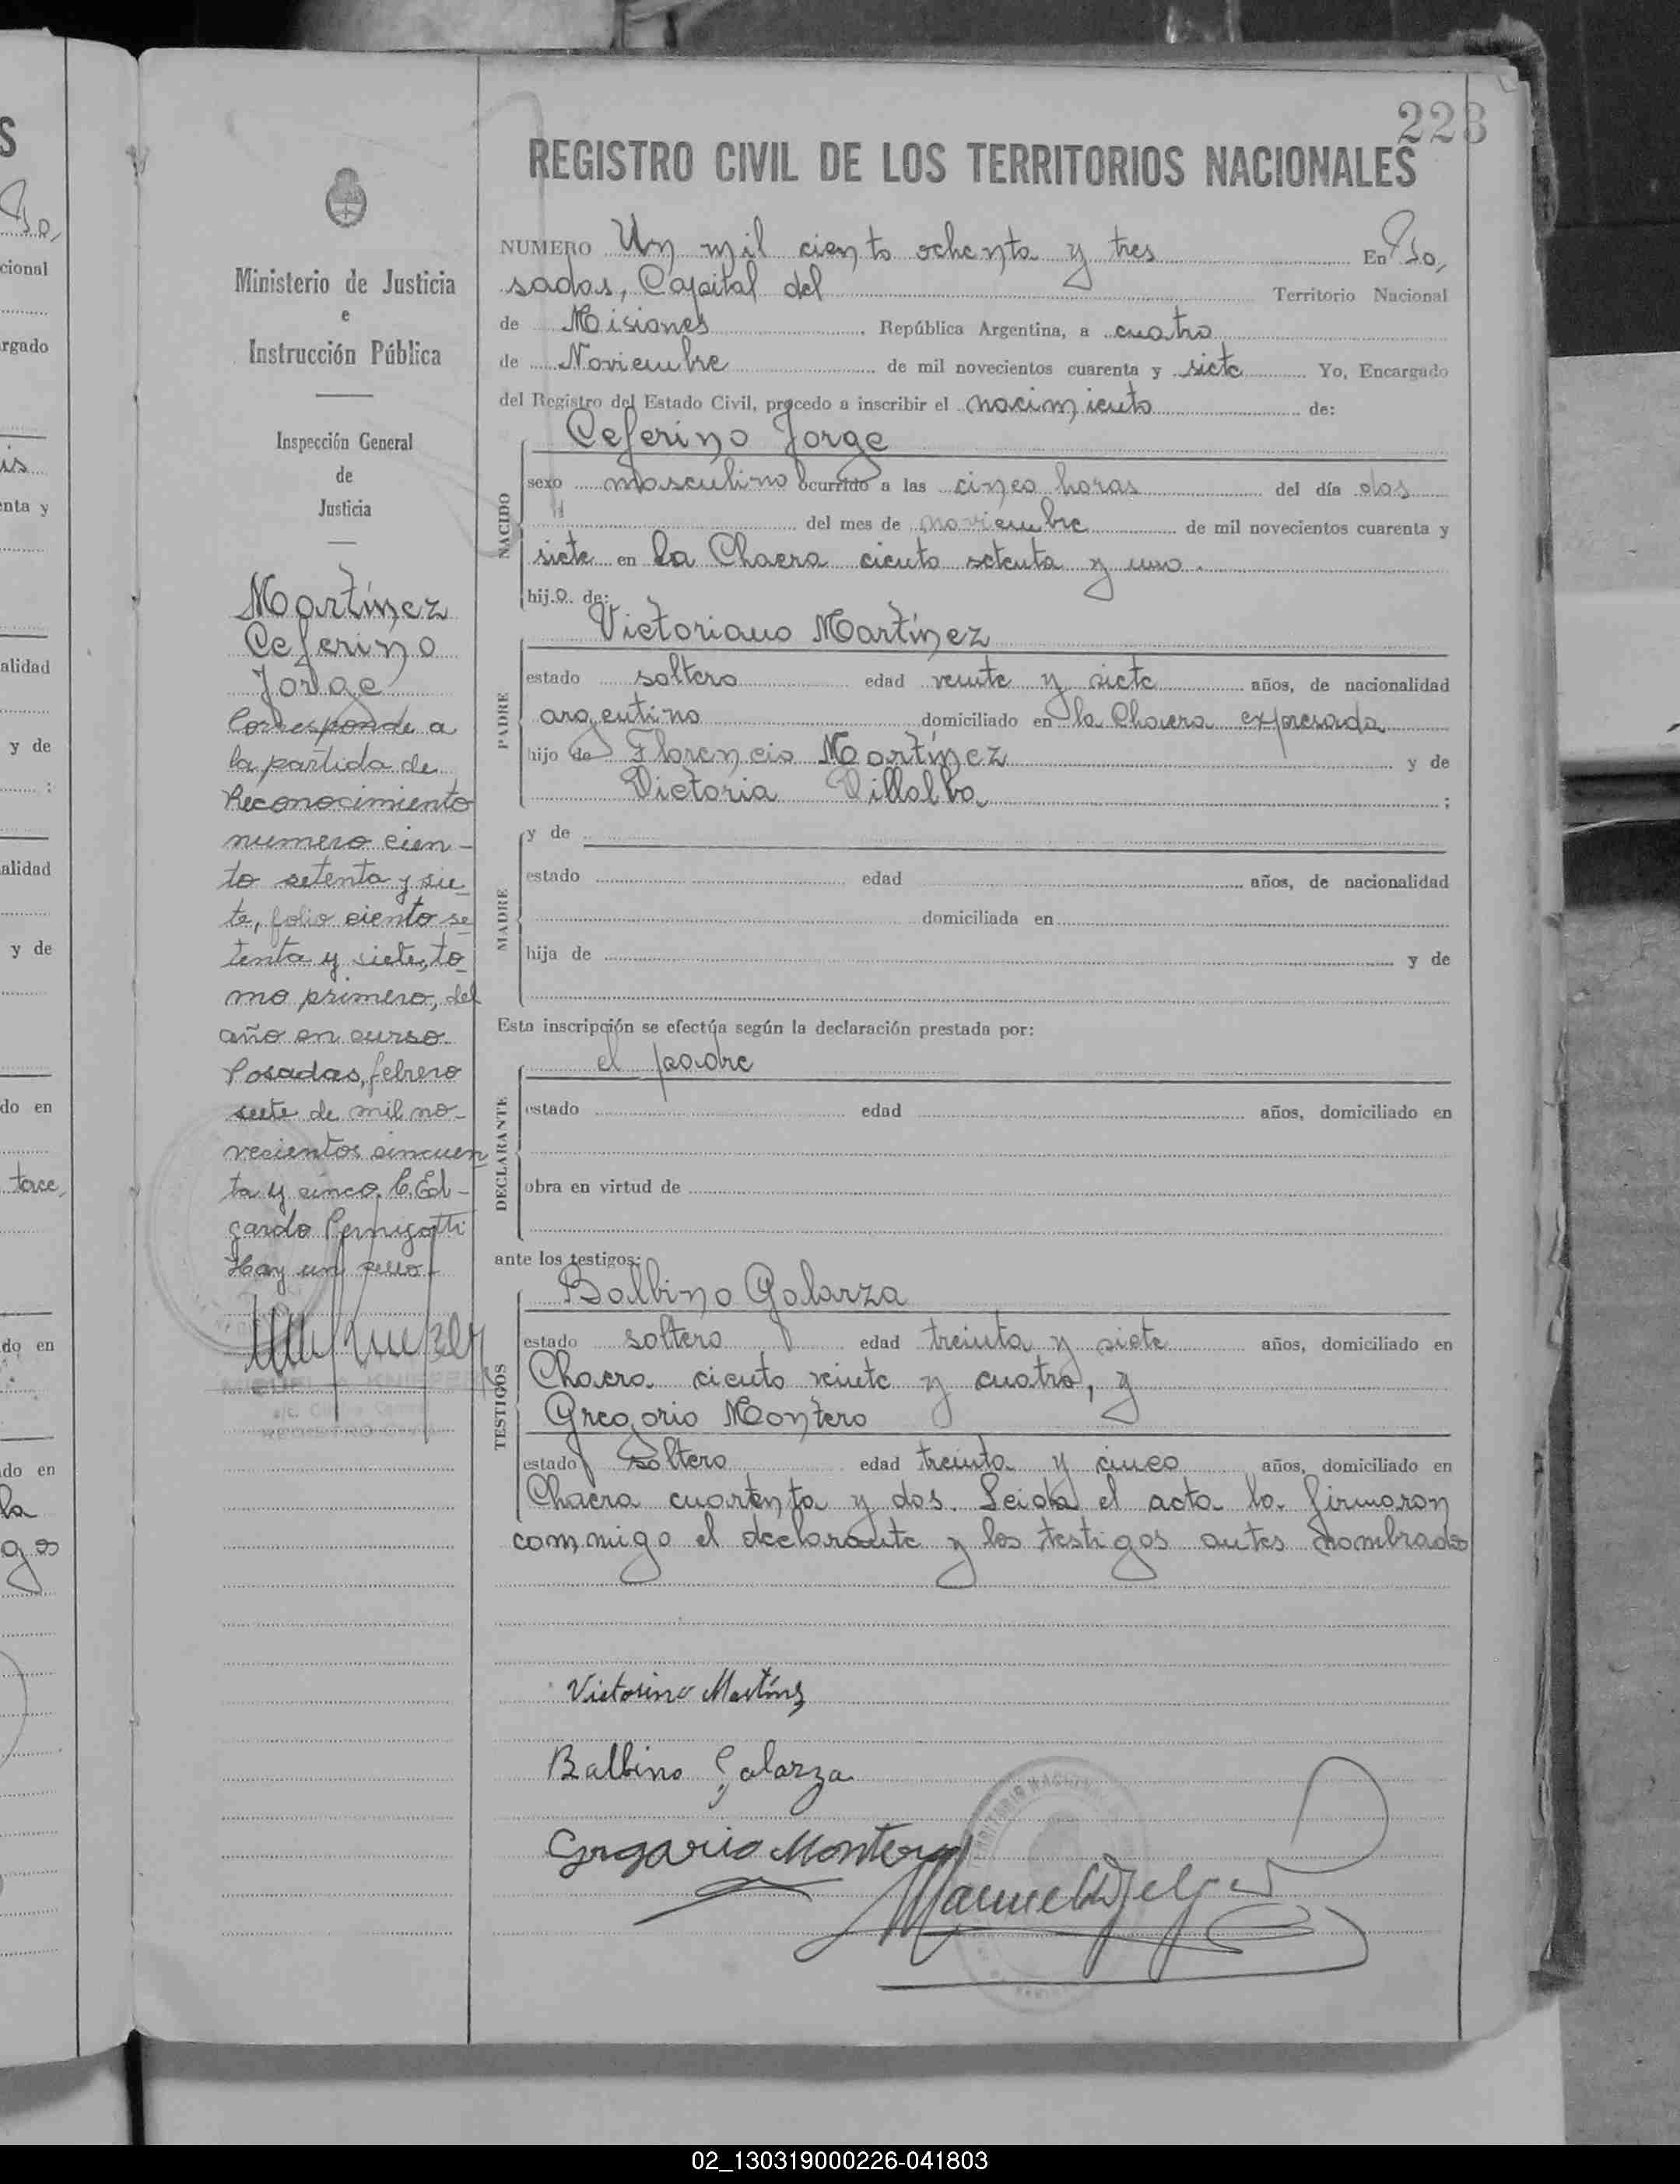 223
REGISTRO CIVIL DE LOS TERRITORIOS NACIONALES
NUMERO Un mil ciento ochenta y tres En Po,
sadas, Capital del Territorio Nacional
de Misiones República Argentina, a cuatro
de Noviembre de mil novecientos cuarenta y siete Yo, Encargado
del Registro del Estado Civil, procedo a inscribir el nacimiento de:
NACIDO
Ceferino Jorge
sexo masculino ocurrido a las cinco horas del día dos
del mes de noviembre de mil novecientos cuarenta y
siete en la Chacra ciento setenta y uno.
hijo de:
PADRE
Victoriano Martínez
estado soltero edad veinte y siete años, de nacionalidad
argentino domiciliado en la Chacra expresada
hijo de Florencio Martínez y de
Victoria Villalba ;
MADRE
y de
estado edad años, de nacionalidad
domiciliada en
hija de y de
Esta inscripción se efectúa según la declaración prestada por:
DECLARANTE
el padre
estado edad años, domiciliado en
obra en virtud de
ante los testigos:
TESTIGOS
Balbino Galarza
estado soltero edad treinta y siete años, domiciliado en
Chacra ciento veinte y cuatro, y
Gregorio Montero
estado soltero edad treinta y cinco años, domiciliado en
Chacra cuarenta y dos. Leida el acta la firmaron
conmigo el declarante y los testigos antes nombrados
Victorino Martínz
Balbino Galarza
Grgario Montero
Ministerio de Justicia
e
Instrucción Pública
Inspección General
de
Justicia
Martínez
Ceferino
Jorge
Corresponde a
la partida de
Reconocimiento
numero cien-
to setenta y sie
te, folio ciento se
tenta y siete, to
mo primero, del
año en curso.
Posadas, febrero
siete de mil no-
vecientos cincuen
ta y cinco. C. Ed-
gardo Pernigotti
Hay un sello-
S
Po,
cional
rgado
is
enta y
alidad
y de
:
alidad
y de
do en
tace,
do en
do en
la
gos
02_130319000226-041803